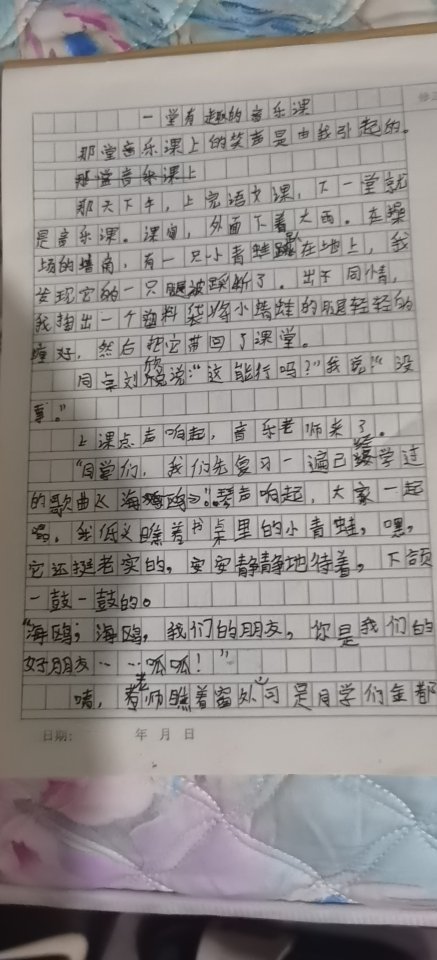 一堂有趣的音乐课
那堂音乐课上的笑声是由我引起的。
那堂音乐课上
那天下午，上完语文课，下一堂就
是音乐课。课间，外面下着大雨。在操
场的墙角，有一只小青蛙蹲在地上，我
发现它的一只腿被踩断了。出于同情，
我掏出一个塑料袋将小青蛙的腿轻轻的
缠好，然后把它带回了课堂。
同桌刘欣说："这能行吗？"我说："没
事。"
上课点声响起，音乐老师来了。
"同学们，我们先复习一遍已经学过
的歌曲《海鸥》"琴声响起，大家一起
唱，我低头瞧着书桌里的小青蛙，嘿，
它还挺老实的，安安静静地待着，下颌
一鼓一鼓的。
"海鸥；海鸥，我们的朋友，你是我们的
好朋友……呱呱！"
咦，老师瞧着窗外习是同学们全都
日期： 年 月 日